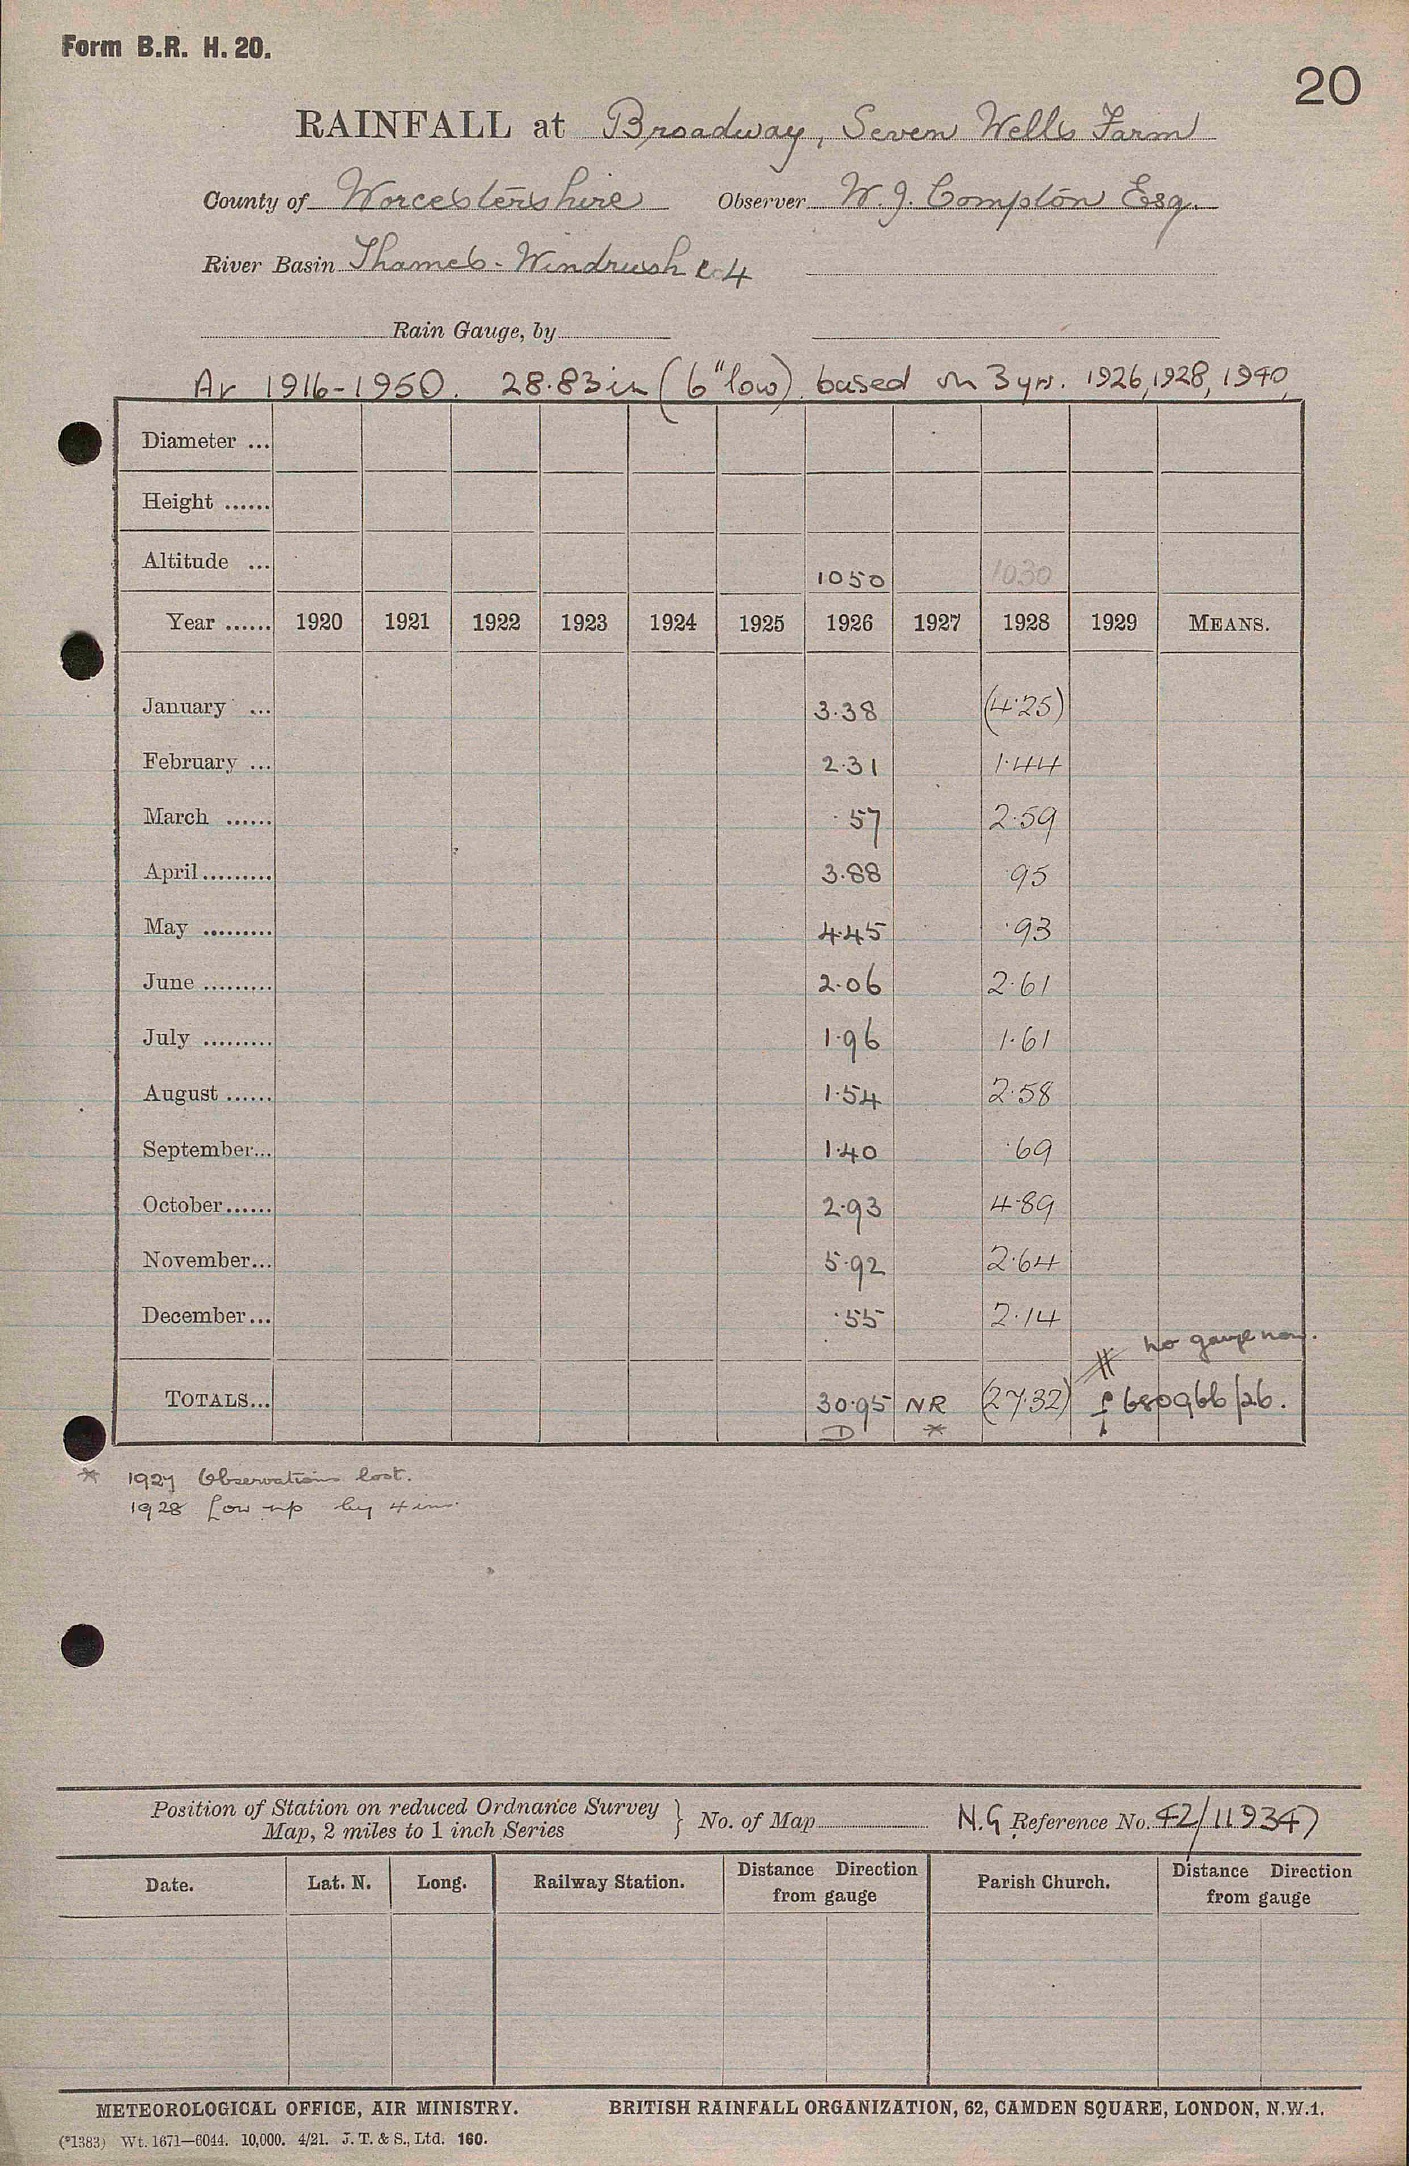 Form B.R. H. 20.
20
RAINFALL at Broadway, Seven Wells Farm
County of Worcestershire Observer W. J. Compton Esq.
River Basin Thames - Windrush 4
Rain Gauge, by
Av 1916-1950. 28.83 in (6" low). based on 3 yrs. 1926, 1928, 1940,
Diameter ...
Height ......
Altitude ... 1050 1030
Year ...... 1920 1921 1922 1923 1924 1925 1926 1927 1928 1929 MEANS.
January ... 3.38 (4.25)
February ... 2.31 1.44
March ...... .57 2.59
April ......... 3.88 .95
May ......... 4.45 .93
June ......... 2.06 2.61
July ......... 1.96 1.61
August ...... 1.54 2.58
September... 1.40 .69
October...... 2.93 4.89
November... 5.92 2.64
December... .55 2.14
no gauge now.
TOTALS... 30.95 NR (27.32) 680966/26.
D *
* 1927 Observations lost.
1928 Low up by 4 ins.
Position of Station on reduced Ordnance Survey Map, 2 miles to 1 inch Series } No. of Map N.G Reference No. 42/119347
Date. Lat. N. Long. Railway Station. Distance Direction from gauge Parish Church. Distance Direction from gauge
METEOROLOGICAL OFFICE, AIR MINISTRY. BRITISH RAINFALL ORGANIZATION, 62, CAMDEN SQUARE, LONDON, N.W.1.
(*1383) Wt. 1671—6044. 10,000. 4/21. J. T. & S., Ltd. 160.